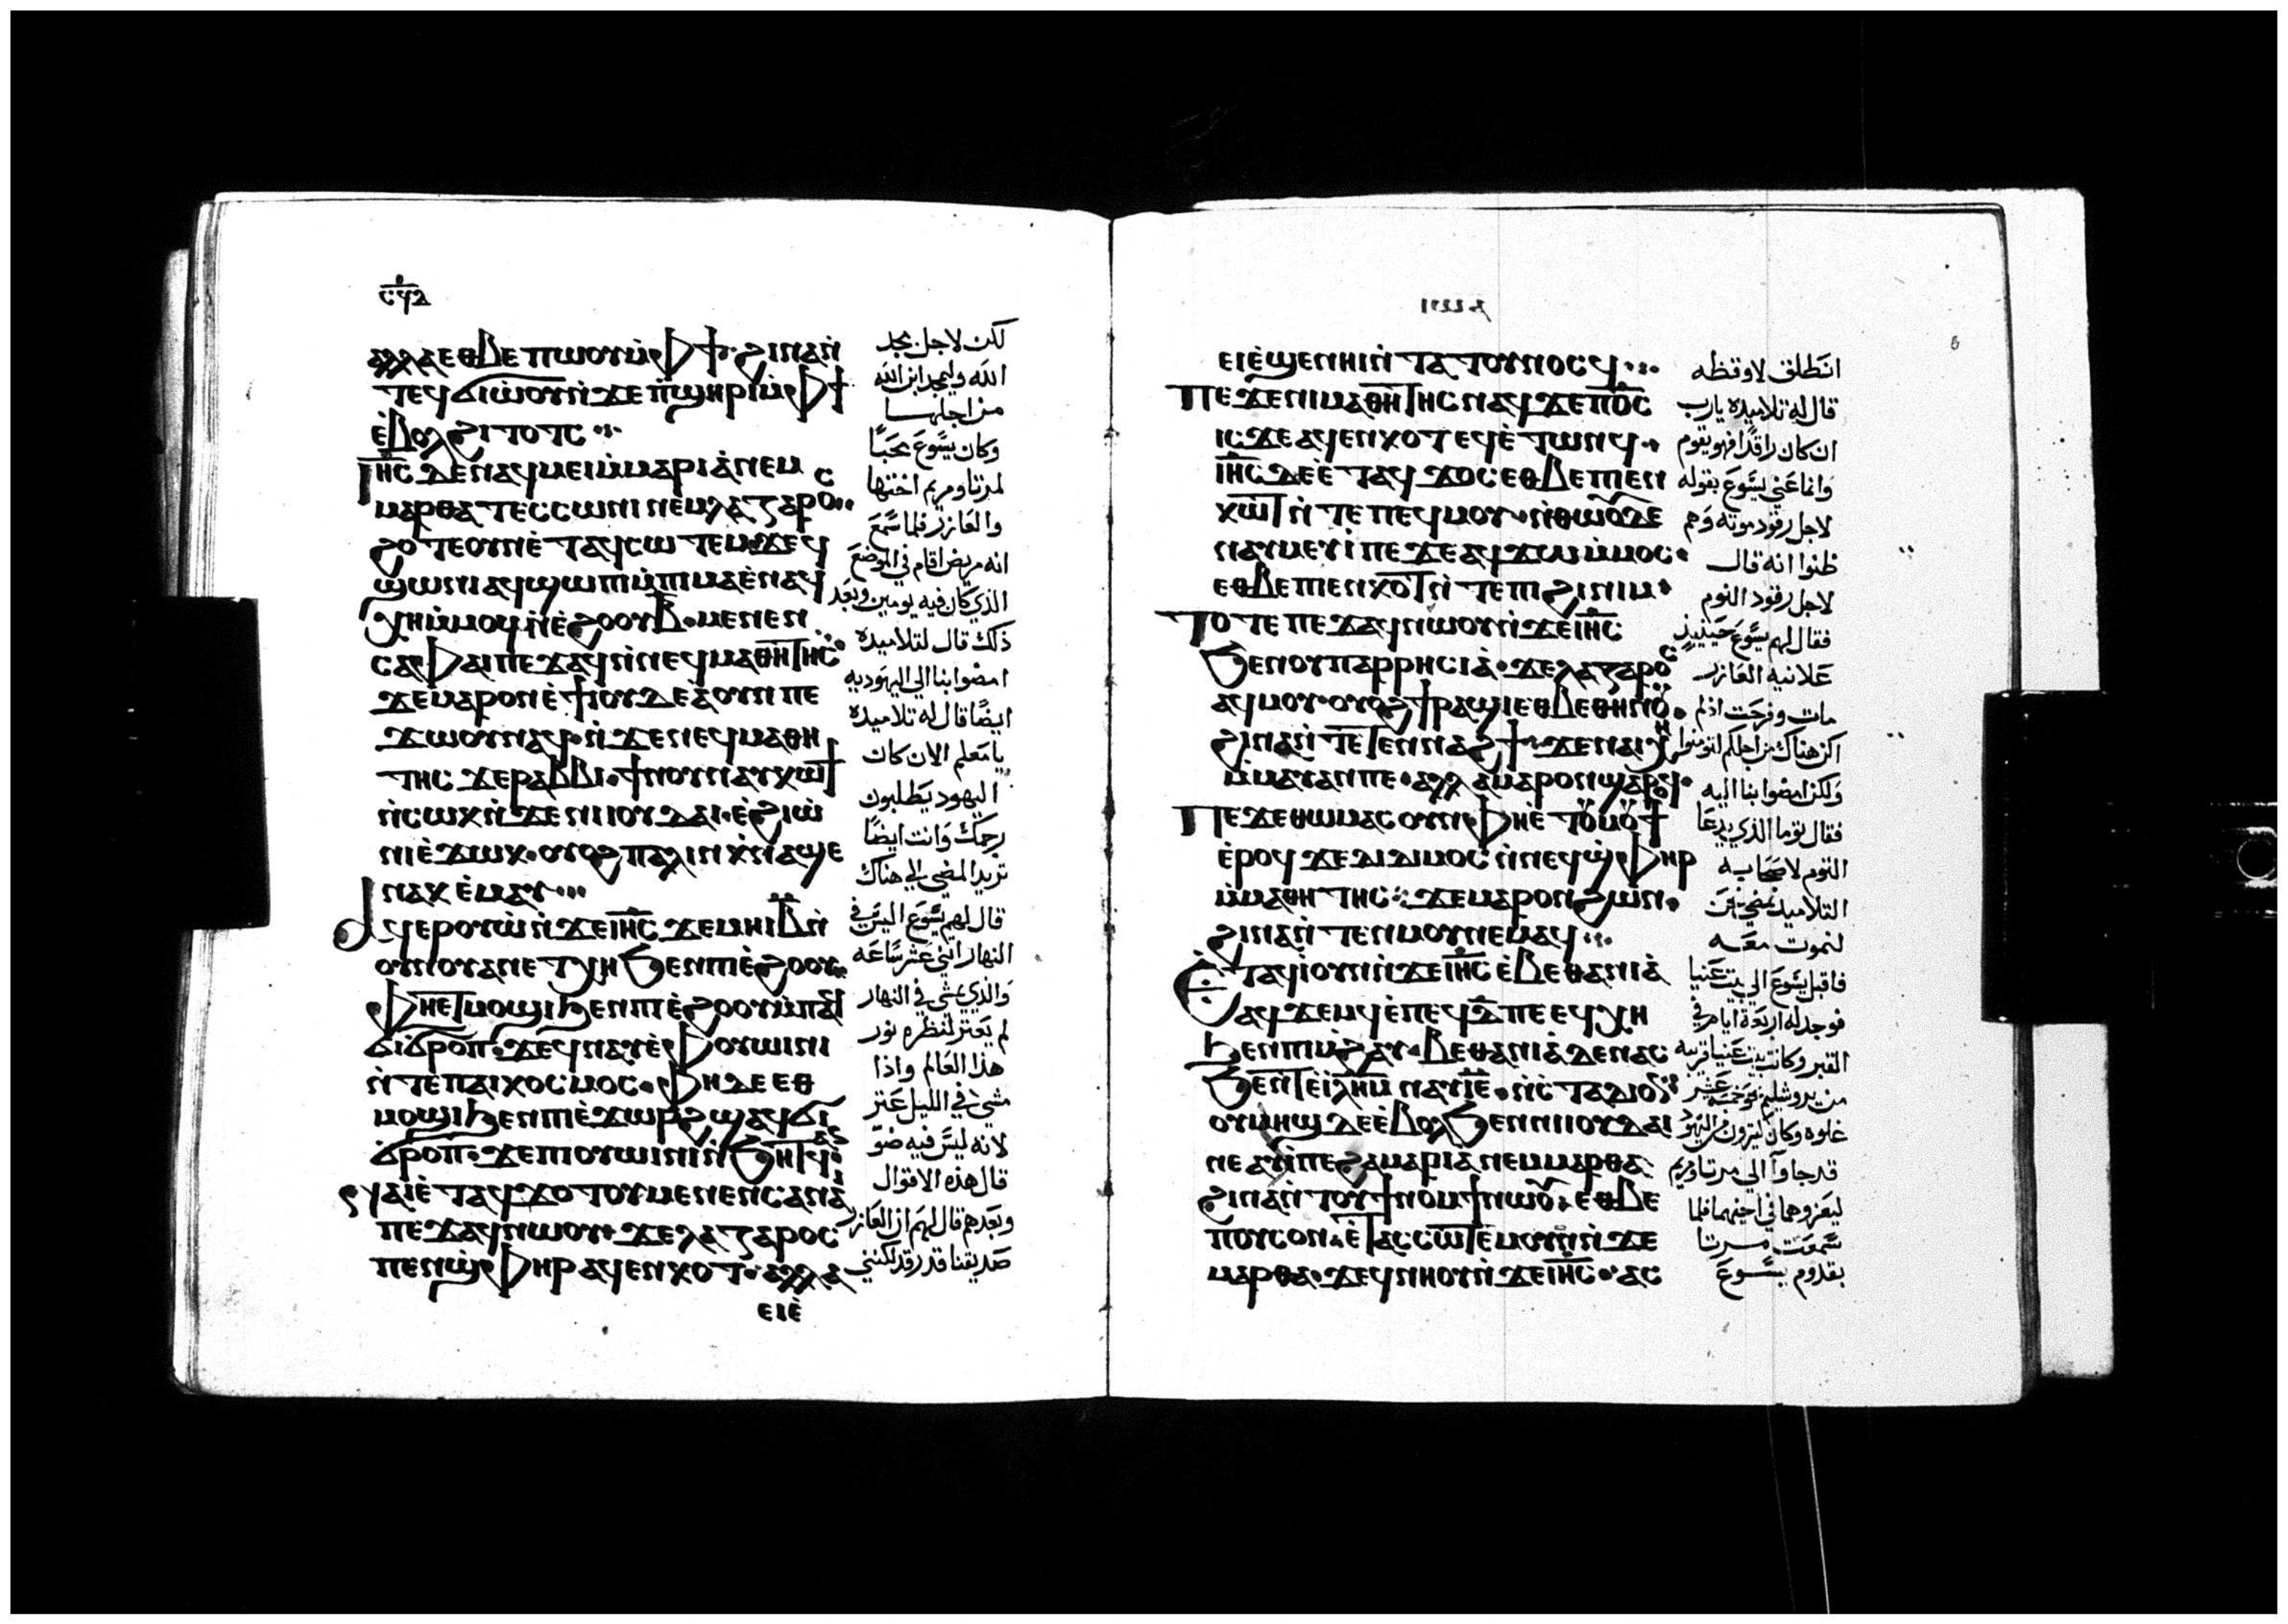 ⲥϥⲇ
ⲁⲗⲗⲁ ⲉⲑⲃⲉ ⲡⲱⲟⲩ ⲙ̇ⲫϯ· ϩⲓⲛⲁ ⲛ̇
ⲧⲉϥϭⲓⲱ̇ⲟⲩ ⲛ̇ϫⲉ ⲡ̇ϣⲏⲣⲓ ⲙ̇ⲫϯ
ⲉ̇ⲃⲟⲗ ϩⲓⲧⲟⲧⲥ
ⲓⲏ̅ⲥ̅ ⲇⲉ ⲛⲁϥⲙⲉⲓ ⲙ̇ⲙⲁⲣⲓⲁ̇ ⲛⲉⲙ
ⲙⲁⲣⲑⲁ ⲧⲉⲥⲥⲱⲛⲓ ⲛⲉⲙ ⲗⲁⲍⲁⲣⲟⲥ
ϩⲟⲧⲉ ⲟⲩⲛ ⲉ̇ⲧⲁϥⲥⲱⲧⲉⲙ ϫⲉ ϥ
ϣⲱⲛⲓ ⲁϥϣⲱⲡⲓ ⲙ̇ⲡⲓⲙⲁ ⲉ̇ⲛⲁϥ
ⲭⲏ ⲙ̇ⲙⲟϥ ⲛ̇ⲉ̇ϩⲟⲟⲩ ⲃ̅· ⲙⲉⲛⲉⲛ
ⲥⲁ ⲫⲁⲓ ⲡⲉϫⲁϥ ⲛ̇ⲛⲉϥⲙⲁⲑⲏⲧⲏⲥ
ϫⲉ ⲙⲁⲣⲟⲛ ⲉ̇ϯⲟⲩⲇⲉⲁ ⲟⲩⲛ ⲡⲉ
ϫⲱⲟⲩ ⲛⲁϥ· ⲛ̇ϫⲉ ⲛⲉϥⲙⲁⲑⲏ
ⲧⲏⲥ ϫⲉ ⲣⲁⲃⲃⲓ· ϯⲛⲟⲩ ⲛⲁⲩⲕⲱϯ
ⲛ̇ⲥⲱⲕ ⲛ̇ϫⲉ ⲛⲓⲓⲟⲩⲇⲁⲓ· ⲉ̇ϩⲓⲱ̇
ⲛⲓ ⲉ̇ϫⲱⲕ· ⲟⲩⲟϩ ⲡⲁⲗⲓⲛ ⲭ̇ⲛⲁϣⲉ
ⲛⲁⲕ ⲉ̇ⲙⲁⲩ
ⲁϥⲉⲣⲟⲩⲱ̇ ⲛ̇ϫⲉ ⲓⲏ̅ⲥ̅ ϫⲉ ⲙⲏ ⲓ̅ⲃ̅ ⲛ̇
ⲟⲩⲛⲟⲩ ⲁⲛ ⲉⲧⲭⲏ ϧⲉⲛ ⲡⲓⲉ̇ϩⲟⲟⲩ
ⲫⲏⲉⲧⲙⲟϣⲓ ϧⲉⲛ ⲡⲓⲉ̇ϩⲟⲟⲩ ⲙ̇ⲡⲁϥ
ϭⲓϭⲣⲟⲡ· ϫⲉ ϥⲛⲁⲩ ⲉ̇ⲫⲟⲩⲱⲓⲛⲓ
ⲛ̇ⲧⲉ ⲡⲁⲓⲕⲟⲥⲙⲟⲥ· ⲫⲏ ⲇⲉ ⲉⲑ
ⲙⲟϣⲓ ϧⲉⲛ ⲡⲓⲉ̇ϫⲱⲣϩ ϣⲁϥϭⲓ
ϭⲣⲟⲡ· ϫⲉ ⲡⲓⲟⲩⲱⲓⲛⲓ ⲛ̇ϧⲏⲧϥ ⲁⲛ
ⲛⲁⲓ ⲉ̇ⲧⲁϥϫⲟⲧⲟⲩ ⲙⲉⲛⲉⲛⲥⲁ ⲛⲁⲓ
ⲡⲉϫⲁϥ ⲛⲱⲟⲩ ϫⲉ ⲗⲁⲍⲁⲣⲟⲥ
ⲡⲉⲛϣ̇ⲫⲏⲣ ⲁϥⲉⲛⲕⲟⲧ· ⲁⲗⲗⲁ
ⲉⲓⲉ̇
لكن لاجل مجد
الله وليمجد ابن الله
من اجلها
وكان يسوع محبًا
لمرتا ومريم اختها
والعازر فلما سمع
انه مريض اقام في الموضع
الذي كان فيه يومين وبعد
ذلك قال لتلاميذه
امضوا بنا الي اليهوديه
ايضًا قال له تلاميذه
يا معلم الان كان
اليهود يطلبون
رجمك وانت ايضًا
تريد المضي الي هناك
قال لهم يسوع اليس في
النهار اثني عشر ساعه
والذي يمشي في النهار
لم يعتر لنظره نور
هذا العالم واذا
مشي في الليل عتر
لانه ليس فيه ضو
قال هذه الاقوال
وبعدهم قال لهم ان العازر
صديقنا قد رقد لكنني
ⲉⲓⲉ̇ϣⲉⲛⲏⲓ ⲛ̇ⲧⲁⲧⲟⲩⲛⲟⲥϥ
ⲡⲉϫⲉ ⲛⲓⲙⲁⲑⲏⲧⲏⲥ ⲛⲁϥ ϫⲉ ⲡϭⲟⲓⲥ
ⲓⲥϫⲉ ⲁϥⲉⲛⲕⲟⲧ ⲉϥⲉ̇ⲧⲱⲛϥ
ⲓⲏ̅ⲥ̅ ⲇⲉ ⲉ̇ⲧⲁϥϫⲟⲥ ⲉⲑⲃⲉ ⲡⲉⲛ
ⲕⲟⲧ ⲛ̇ⲧⲉ ⲡⲉϥⲙⲟⲩ· ⲛ̇ⲑⲱⲟⲩ ⲇⲉ
ⲛⲁⲩⲙⲉⲩⲓ̇ ⲡⲉ ϫⲉ ⲁϥϫⲱ ⲙ̇ⲙⲟⲥ·
ⲉⲑⲃⲉ ⲡⲉⲛⲕⲟⲧ ⲛ̇ⲧⲉ ⲡⲓϩⲓⲛⲓⲙ·
ⲧⲟⲧⲉ ⲡⲉϫⲁϥ ⲛⲱⲟⲩ ⲛ̇ϫⲉ ⲓⲏ̅ⲥ̅
ϧⲉⲛ ⲟⲩⲡⲁⲣⲣⲏⲥⲓⲁ̇· ϫⲉ ⲗⲁⲍⲁⲣⲟⲥ
ⲁϥⲙⲟⲩ· ⲟⲩⲟϩ ϯⲣⲁϣⲓ ⲉⲑⲃⲉ ⲑⲏⲛⲟⲩ·
ϩⲓⲛⲁ ⲛ̇ⲧⲉⲧⲉⲛⲛⲁϩϯ· ϫⲉ ⲛⲁⲓⲭⲏ
ⲙ̇ⲙⲁⲩ ⲁⲛ ⲡⲉ· ⲁⲗⲗⲁ ⲙⲁⲣⲟⲛ ϣⲁⲣⲟϥ·
ⲡⲉϫⲉ ⲑⲱⲙⲁⲥ ⲟⲩⲛ ⲫⲏⲉ̇ⲧⲟⲩⲙⲟⲩϯ
ⲉ̇ⲣⲟϥ ϫⲉ ⲇⲓⲇⲓⲙⲟⲥ ⲛ̇ⲛⲉϥϣ̇ⲫⲏⲣ
ⲙ̇ⲙⲁⲑⲏⲧⲏⲥ: ϫⲉ ⲙⲁⲣⲟⲛ ϩⲱⲛ·
ϩⲓⲛⲁ ⲛ̇ⲧⲉⲛⲙⲟⲩ ⲛⲉⲙⲁϥ
ⲉ̇ⲧⲁϥⲓ̇ ⲟⲩⲛ ⲛ̇ϫⲉ ⲓⲏ̅ⲥ̅ ⲉ̇ⲃⲉⲑⲁⲛⲓⲁ̇
ⲁϥϫⲉⲙϥ ⲉ̇ⲡⲉϥⲇ̅ ⲡⲉ ⲉϥⲭⲏ
ϧⲉⲛ ⲡⲓⲙ̇ϩⲁⲩ· ⲃⲉⲑⲁⲛⲓⲁ̇ ⲇⲉ ⲛⲁⲥ
ϧⲉⲛⲧ ⲉ̇ⲓⲗⲏⲙ ⲛⲁⲩ ⲓ̅ⲉ̅· ⲛ̇ⲥⲧⲁⲇⲓⲟⲛ
ⲟⲩⲙⲏϣ ⲇⲉ ⲉ̇ⲃⲟⲗ ϧⲉⲛ ⲛⲓⲓⲟⲩⲇⲁⲓ
ⲛⲉ ⲁⲩⲓ̇ ⲡⲉ ϩⲁ ⲙⲁⲣⲓⲁ ⲛⲉⲙ ⲙⲁⲣⲑⲁ
ϩⲓⲛⲁ ⲛ̇ⲧⲟⲩϯⲛⲟⲙϯ ⲛⲱⲟⲩ· ⲉⲑⲃⲉ
ⲡⲟⲩⲥⲟⲛ· ⲉ̇ⲧⲁⲥⲥⲱⲧⲉⲙ ⲟⲩⲛ ⲛ̇ϫⲉ
ⲙⲁⲣⲑⲁ· ϫⲉ ϥⲛⲏⲟⲩ ⲛ̇ϫⲉ ⲓⲏ̅ⲥ̅· ⲁⲥ
انطلق لاوقظه
قال له تلاميذه يارب
ان كان راقدًا فهو يقوم
وانما عني يسوع بقوله
لاجل رقود موته وهم
ظنوا انه قال
لاجل رقود النوم
فقال لهم يسوع حينيذٍ
علانيه العازر
مات وفرحت اذ لم
اكن هناك من اجلكم لتومنوا
ولكن امضوا بنا اليه
فقال توما الذي يدعا
التوم لاصحابه
التلاميذ نمضي نحن
لنموت معه
فاقبل يسوع الي بيت عنيا
فوجد له اربعة ايام في
القبر وكانت بيت عنيا قريبه
من يروشليم نحو خمسة عشر
غلوه وكان كثيرون من اليهود
قد جاوا الي مرتا ومريم
ليعزوهما في اخيهما فلما
سمعت مرتا
بقدوم يسوع